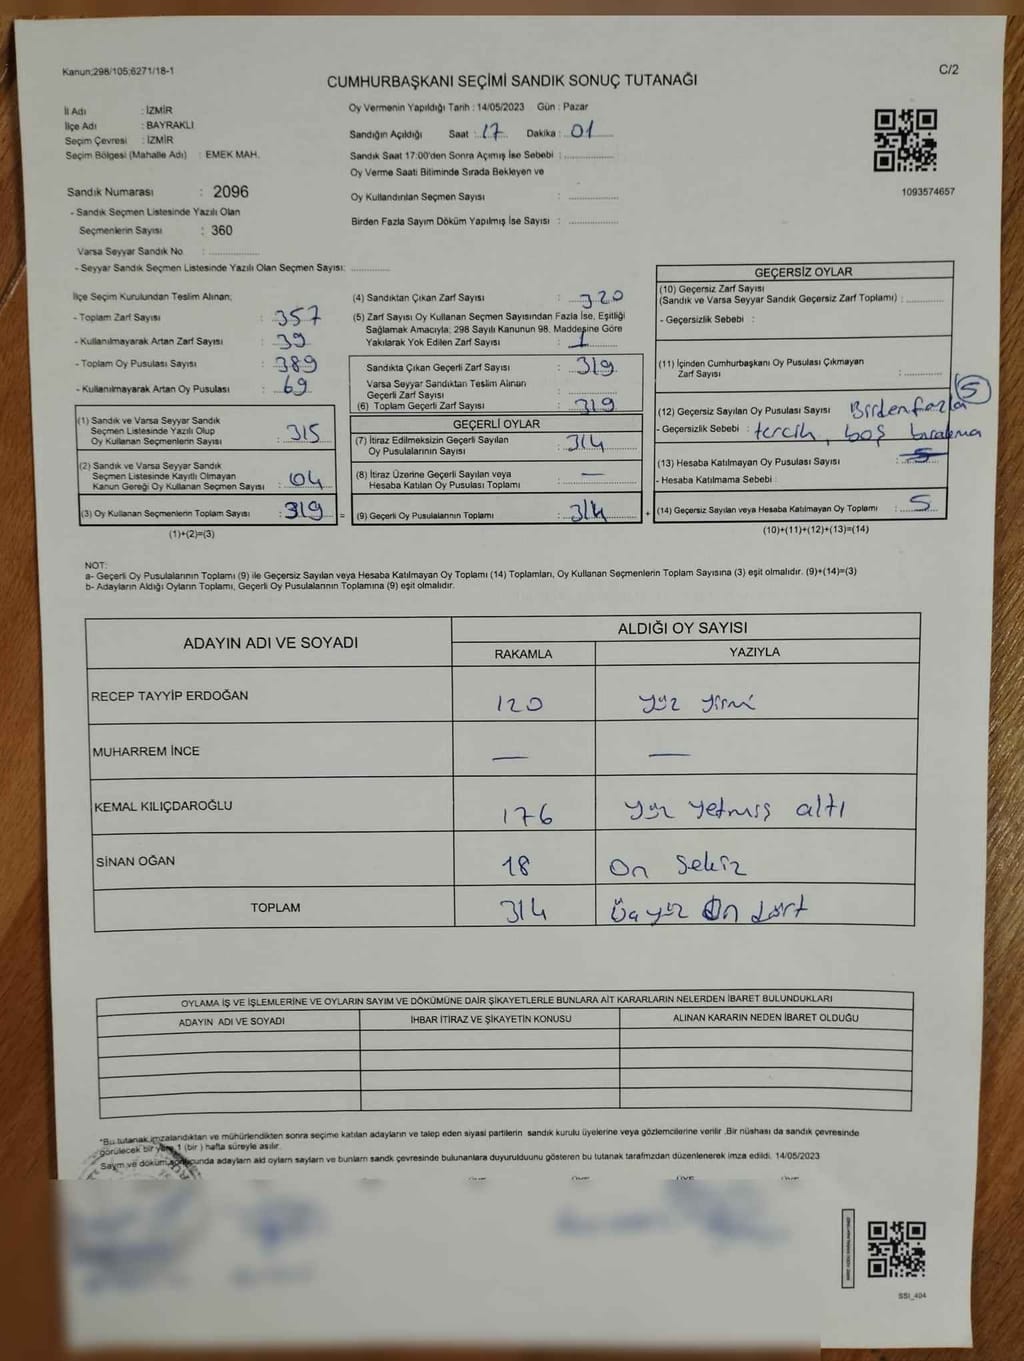 Kanun;298/105;6271/18-1
C/2
CUMHURBAŞKANI SEÇİMİ SANDIK SONUÇ TUTANAĞI
İl Adı : İZMİR
İlçe Adı : BAYRAKLI
Seçim Çevresi : İZMİR
Seçim Bölgesi (Mahalle Adı) : EMEK MAH.
Sandık Numarası : 2096
- Sandık Seçmen Listesinde Yazılı Olan
Seçmenlerin Sayısı : 360
Varsa Seyyar Sandık No :
- Seyyar Sandık Seçmen Listesinde Yazılı Olan Seçmen Sayısı:
Oy Vermenin Yapıldığı Tarih : 14/05/2023 Gün : Pazar
Sandığın Açıldığı Saat : 17 Dakika : 01
Sandık Saat 17:00'den Sonra Açımış İse Sebebi :
Oy Verme Saati Bitiminde Sırada Bekleyen ve
Oy Kullandırılan Seçmen Sayısı :
Birden Fazla Sayım Döküm Yapılmış İse Sayısı :
1093574657
İlçe Seçim Kurulundan Teslim Alınan;
- Toplam Zarf Sayısı : 357
- Kullanılmayarak Artan Zarf Sayısı : 39
- Toplam Oy Pusulası Sayısı : 389
- Kullanılmayarak Artan Oy Pusulası : 69
(1) Sandık ve Varsa Seyyar Sandık
Seçmen Listesinde Yazılı Olup
Oy Kullanan Seçmenlerin Sayısı : 315
(2) Sandık ve Varsa Seyyar Sandık
Seçmen Listesinde Kayıtlı Olmayan
Kanun Gereği Oy Kullanan Seçmen Sayısı : 04
(3) Oy Kullanan Seçmenlerin Toplam Sayısı : 319 =
(1)+(2)=(3)
(4) Sandıktan Çıkan Zarf Sayısı : 320
(5) Zarf Sayısı Oy Kullanan Seçmen Sayısından Fazla İse, Eşitliği
Sağlamak Amacıyla; 298 Sayılı Kanunun 98. Maddesine Göre
Yakılarak Yok Edilen Zarf Sayısı : 1
Sandıkta Çıkan Geçerli Zarf Sayısı : 319
Varsa Seyyar Sandıktan Teslim Alınan
Geçerli Zarf Sayısı :
(6) Toplam Geçerli Zarf Sayısı : 319
GEÇERLİ OYLAR
(7) İtiraz Edilmeksizin Geçerli Sayılan
Oy Pusulalarının Sayısı : 314
(8) İtiraz Üzerine Geçerli Sayılan veya
Hesaba Katılan Oy Pusulası Toplamı : —
(9) Geçerli Oy Pusulalarının Toplamı : 314 +
GEÇERSİZ OYLAR
(10) Geçersiz Zarf Sayısı
(Sandık ve Varsa Seyyar Sandık Geçersiz Zarf Toplamı) :
- Geçersizlik Sebebi :
(11) İçinden Cumhurbaşkanı Oy Pusulası Çıkmayan
Zarf Sayısı :
(12) Geçersiz Sayılan Oy Pusulası Sayısı : Birden fazla 5
- Geçersizlik Sebebi : tercih, boş bırakma
(13) Hesaba Katılmayan Oy Pusulası Sayısı : 5
- Hesaba Katılmama Sebebi :
(14) Geçersiz Sayılan veya Hesaba Katılmayan Oy Toplamı : 5
(10)+(11)+(12)+(13)=(14)
NOT:
a- Geçerli Oy Pusulalarının Toplamı (9) ile Geçersiz Sayılan veya Hesaba Katılmayan Oy Toplamı (14) Toplamları, Oy Kullanan Seçmenlerin Toplam Sayısına (3) eşit olmalıdır. (9)+(14)=(3)
b- Adayların Aldığı Oyların Toplamı, Geçerli Oy Pusulalarının Toplamına (9) eşit olmalıdır.
ADAYIN ADI VE SOYADI
ALDIĞI OY SAYISI
RAKAMLA YAZIYLA
RECEP TAYYİP ERDOĞAN 120 Yüz yirmi
MUHARREM İNCE — —
KEMAL KILIÇDAROĞLU 176 Yüz yetmiş altı
SİNAN OĞAN 18 On sekiz
TOPLAM 314 Üç yüz On dört
OYLAMA İŞ VE İŞLEMLERİNE VE OYLARIN SAYIM VE DÖKÜMÜNE DAİR ŞİKAYETLERLE BUNLARA AİT KARARLARIN NELERDEN İBARET BULUNDUKLARI
ADAYIN ADI VE SOYADI İHBAR İTİRAZ VE ŞİKAYETİN KONUSU ALINAN KARARIN NEDEN İBARET OLDUĞU
*Bu tutanak imzalandıktan ve mühürlendikten sonra seçime katılan adayların ve talep eden siyasi partilerin sandık kurulu üyelerine veya gözlemcilerine verilir .Bir nüshası da sandık çevresinde
görülecek bir yere 1 (bir ) hafta süreyle asılır.
Sayım ve döküm sonucunda adayların aldı oyların sayıları ve bunların sandk çevresinde bulunanlara duyurulduunu gösteren bu tutanak tarafmzdan düzenlenerek imza edildi. 14/05/2023
SSI_404